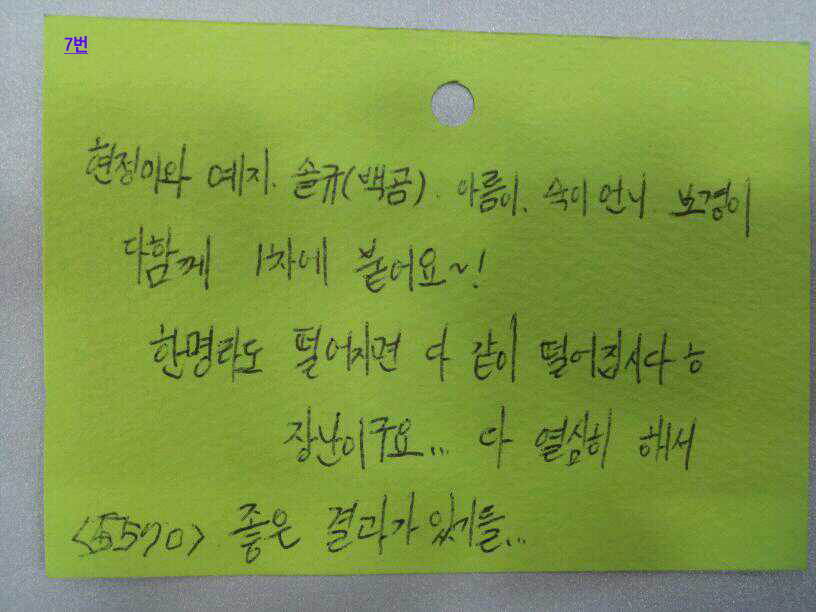 7번
현정이와 예지. 솔규(백곰). 아름이. 숙이 언니. 보경이
다함께 1차에 붙어요~!
한명라도 떨어지면 다 같이 떨어집시다 ㅎ
장난이구요... 다 열심히 해서
<5570> 좋은 결과가 있기를...